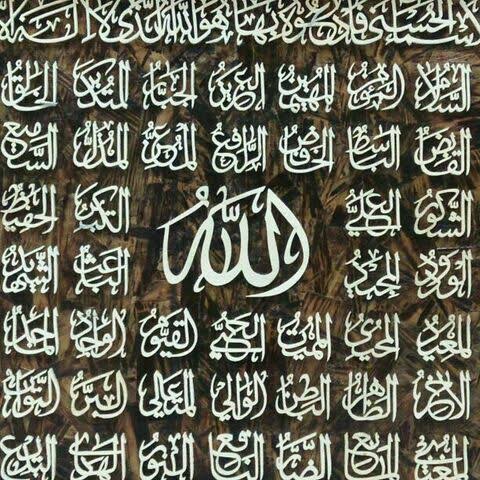 الحسنى فادعوه بها هو الله الذي لا إله
السلام المؤمن المهيمن العزيز الجبار المتكبر الخالق
القابض الباسط الخافض الرافع المعز المذل السميع
الشكور العلي الكبير الحفيظ
الله
الودود المجيد الباعث الشهيد
المعيد المحيي المميت الحي القيوم الواجد الماجد
الآخر الظاهر الباطن الوالي المتعالي البر التواب
المغني المانع الضار النافع النور الهادي البديع